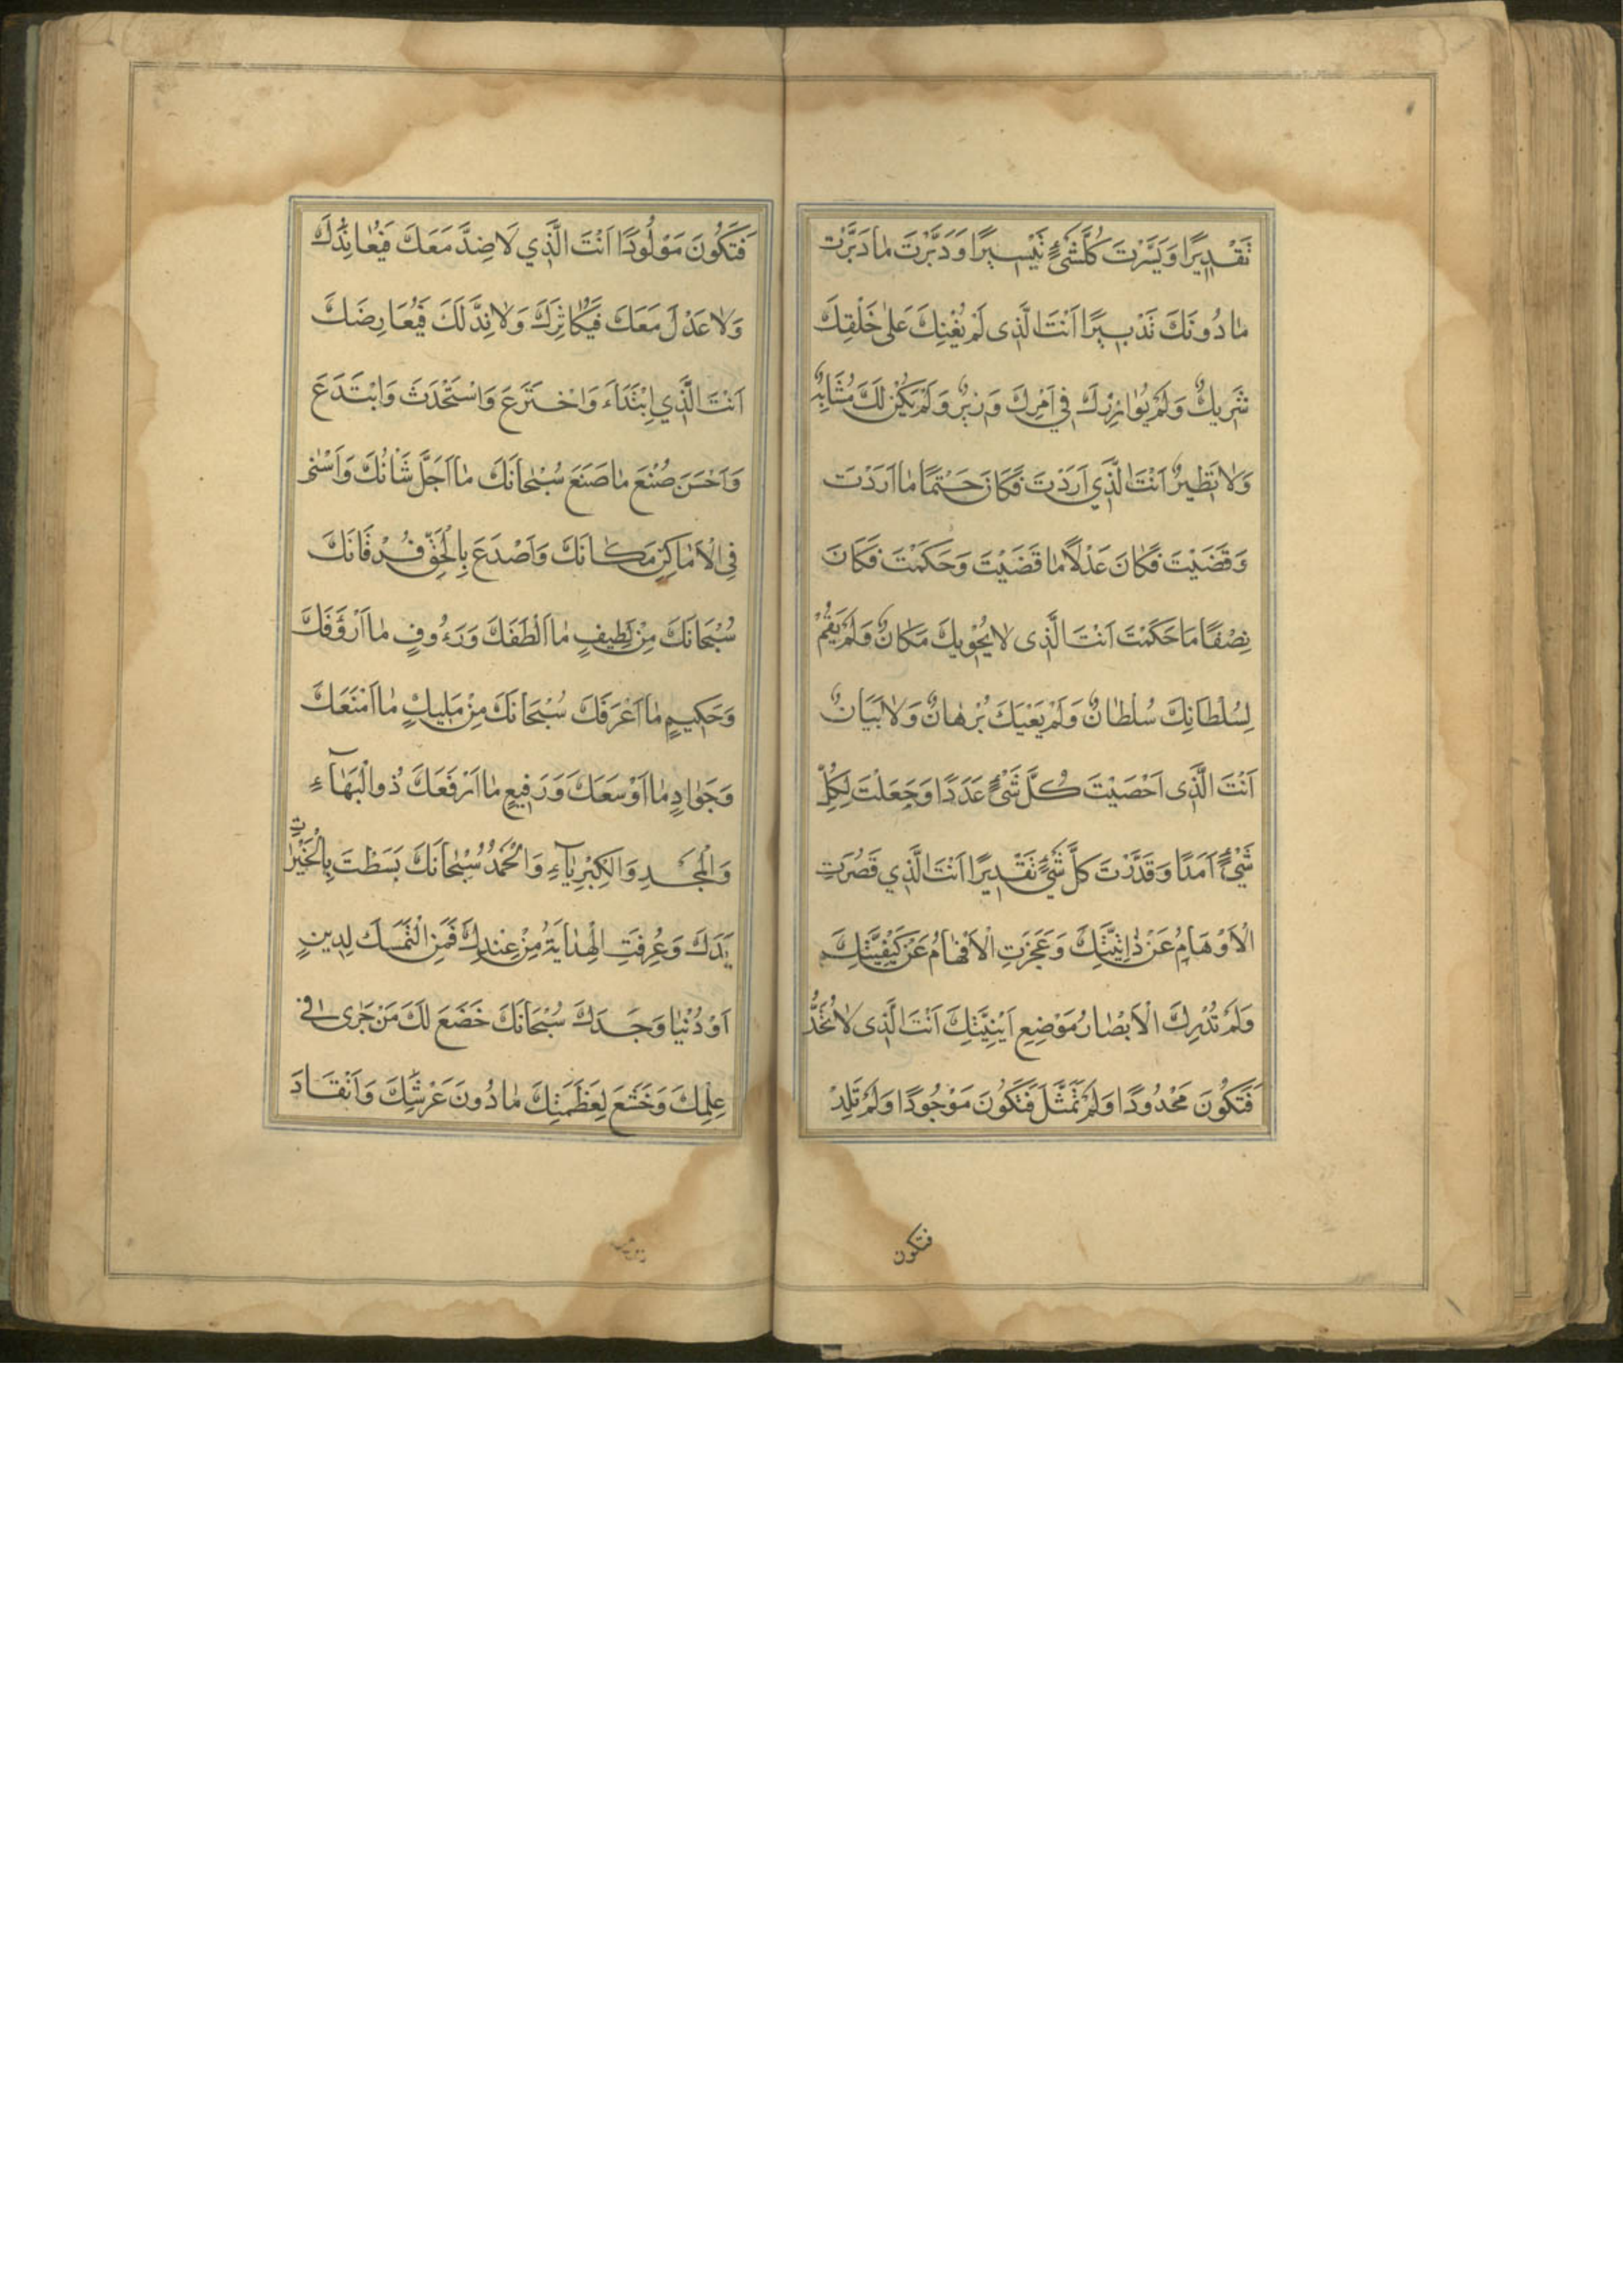 تَقْدِيرًا وَيَسَّرْتَ كُلَّشَیْءٍ تَيْسِيرًا وَدَبَّرْتَ مٰا دَبَّرْتَ
مٰا دُونَكَ تَدْبِيرًا اَنْتَ الَّذِى لَمْ يُعْنِكَ عَلىٰ خَلْقِكَ
شَرِيكٌ وَلَمْ يُوٰازِرْكَ فِي اَمْرِكَ وَزِيرٌ وَلَمْ يَكُنْ لَكَ مُشَابِهٌ
وَلٰا نَظِيرٌ اَنْتَ الَّذِي اَرَدْتَ فَكَانَ حَتْمًا مٰا اَرَدْتَ
وَقَضَيْتَ فَكَانَ عَدْلًا مٰا قَضَيْتَ وَحَكَمْتَ فَكَانَ
نِصْفًا مَا حَكَمْتَ اَنْتَ الَّذِى لٰا يَحْوِيكَ مَكَانٌ وَلَمْ يَقُمْ
لِسُلْطَانِكَ سُلْطَانٌ وَلَمْ يَعْيِكَ بُرْهٰانٌ وَلٰا بَيَانٌ
اَنْتَ الَّذِى اَحْصَيْتَ كُلَّ شَیْءٍ عَدَدًا وَجَعَلْتَ لِكُلِّ
شَیْءٍ اَمَدًا وَقَدَّرْتَ كُلَّ شَیْءٍ تَقْدِيرًا اَنْتَ الَّذِي قَصُرَتِ
الْاَوْهَامُ عَنْ ذٰاتِيَّتِكَ وَعَجَزَتِ الْاَفْهٰامُ عَنْ كَيْفِيَّتِكَ
وَلَمْ تُدْرِكِ الْاَبْصٰارُ مَوْضِعِ اَيْنِيَّتِكَ اَنْتَ الَّذِى لٰا تُحَدُّ
فَتَكُونَ مَحْدُودًا وَلَمْ تُمَثَّلْ فَتَكُونَ مَوْجُودًا وَلَمْ تَلِدْ
فتكون
فَتَكُونَ مَوْلُودًا اَنْتَ الَّذِي لَا ضِدَّ مَعَكَ فَيُعٰانِدُكَ
وَلٰا عَدْلَ مَعَكَ فَيُكٰاثِرَكَ وَلٰا نِدَّ لَكَ فَيُعَارِضَكَ
اَنْتَ الَّذِي اِبْتَدَاَءَ وَاخْتَرَعَ وَاسْتَحْدَثَ وَابْتَدَعَ
وَاَحْسَنَ صُنْعَ مٰا صَنَعَ سُبْحٰانَكَ مٰا اَجَلَّ شَانُكَ وَاَسْنٰى
فِي الْاَمٰاكِنِ مَكَانَكَ وَاَصْدَعَ بِالْحَقِّ فُرْقَانَكَ
سُبْحَانَكَ مِنْ لَطِيفٍ مٰا اَلْطَفَكَ وَرَءُوفٍ مٰا اَرْؤَفَكَ
وَحَكِيمٍ مٰا اَعْرَفَكَ سُبْحَانَكَ مِنْ مَلِيكٍ مٰا اَمْنَعَكَ
وَجَوٰادٍ مٰا اَوْسَعَكَ وَرَفِيعٍ مٰا اَرْفَعَكَ ذُو الْبَهٰآءِ
وَالْمَجْدِ وَالْكِبْرِيٰآءِ وَالْحَمْدُ سُبْحٰانَكَ بَسَطْتَ بِالْخَيْرٰاتِ
يَدَكَ وَعُرِفَتِ الْهِدٰايَةُ مِنْ عِنْدِكَ فَمَنِ الْتَمَسَكَ لِدِينٍ
اَوْ دُنْيٰا وَجَدَكَ سُبْحَانَكَ خَضَعَ لَكَ مَنْ جَرٰى فِى
عِلْمِكَ وَخَشَعَ لِعَظَمَتِكَ مٰا دُونَ عَرْشِكَ وَاَنْقَادَ